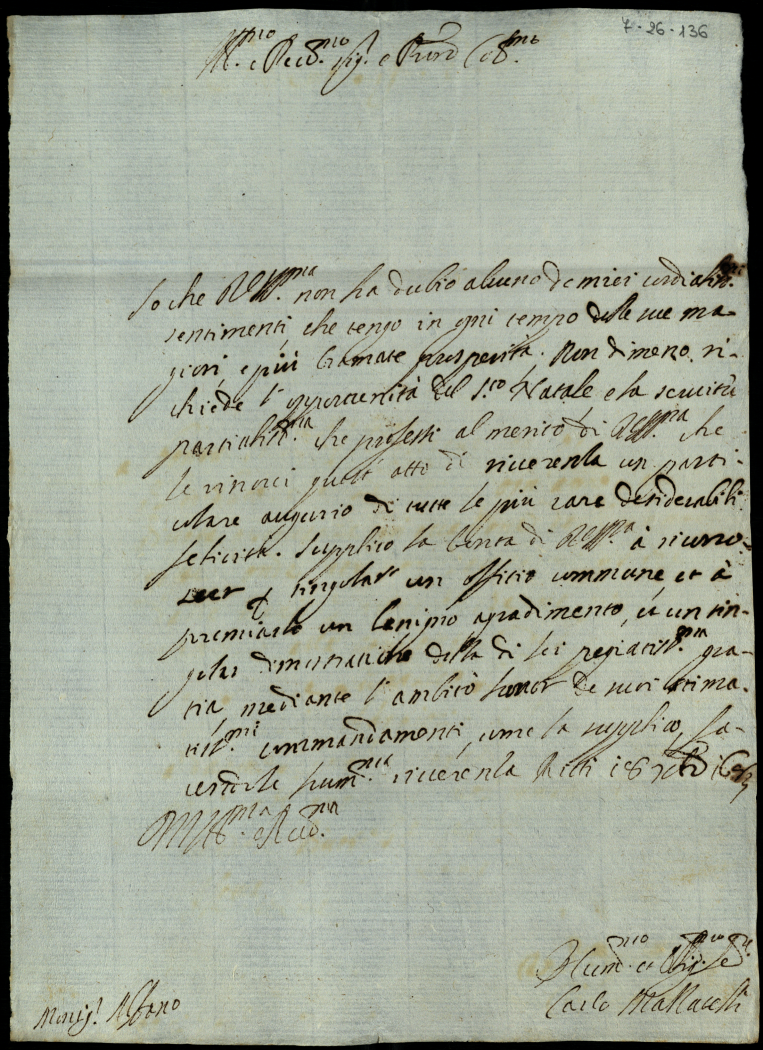 7-26-136
Ill.mo e Rev.mo Sig.r e Pron Col.mo
So che VS Ill.ma non ha dubio alcuno de miei cordialis.mi
sentimenti, che tengo in ogni tempo delle sue ma-
giori, e più bramate prosperità. Non dimeno ri-
chiede l'opportunità del S.to Natale, e la servitù
partialiss.ma che professo al merito di VS Ill.ma che
le rinovi quest'atto di riverenza un parti-
colare augurio di tutte le più rare desiderabili
felicità. Supplico la bontà di VS Ill.ma à ricono-
scer singolar un offitio commune, et à
premiarlo con benigno agradimento, et con sin-
golar dimostratione della di lei pregiatiss.ma gra-
tia mediante l'ambito honor de suoi stima-
tiss.mi commandamenti, come la supplico, fa-
cendole hum.ma riverenza 18 Xbre
VS Ill.ma e Rev.ma
Hum.mo et Obl.mo Se.
Carlo
Monsig.r Albano